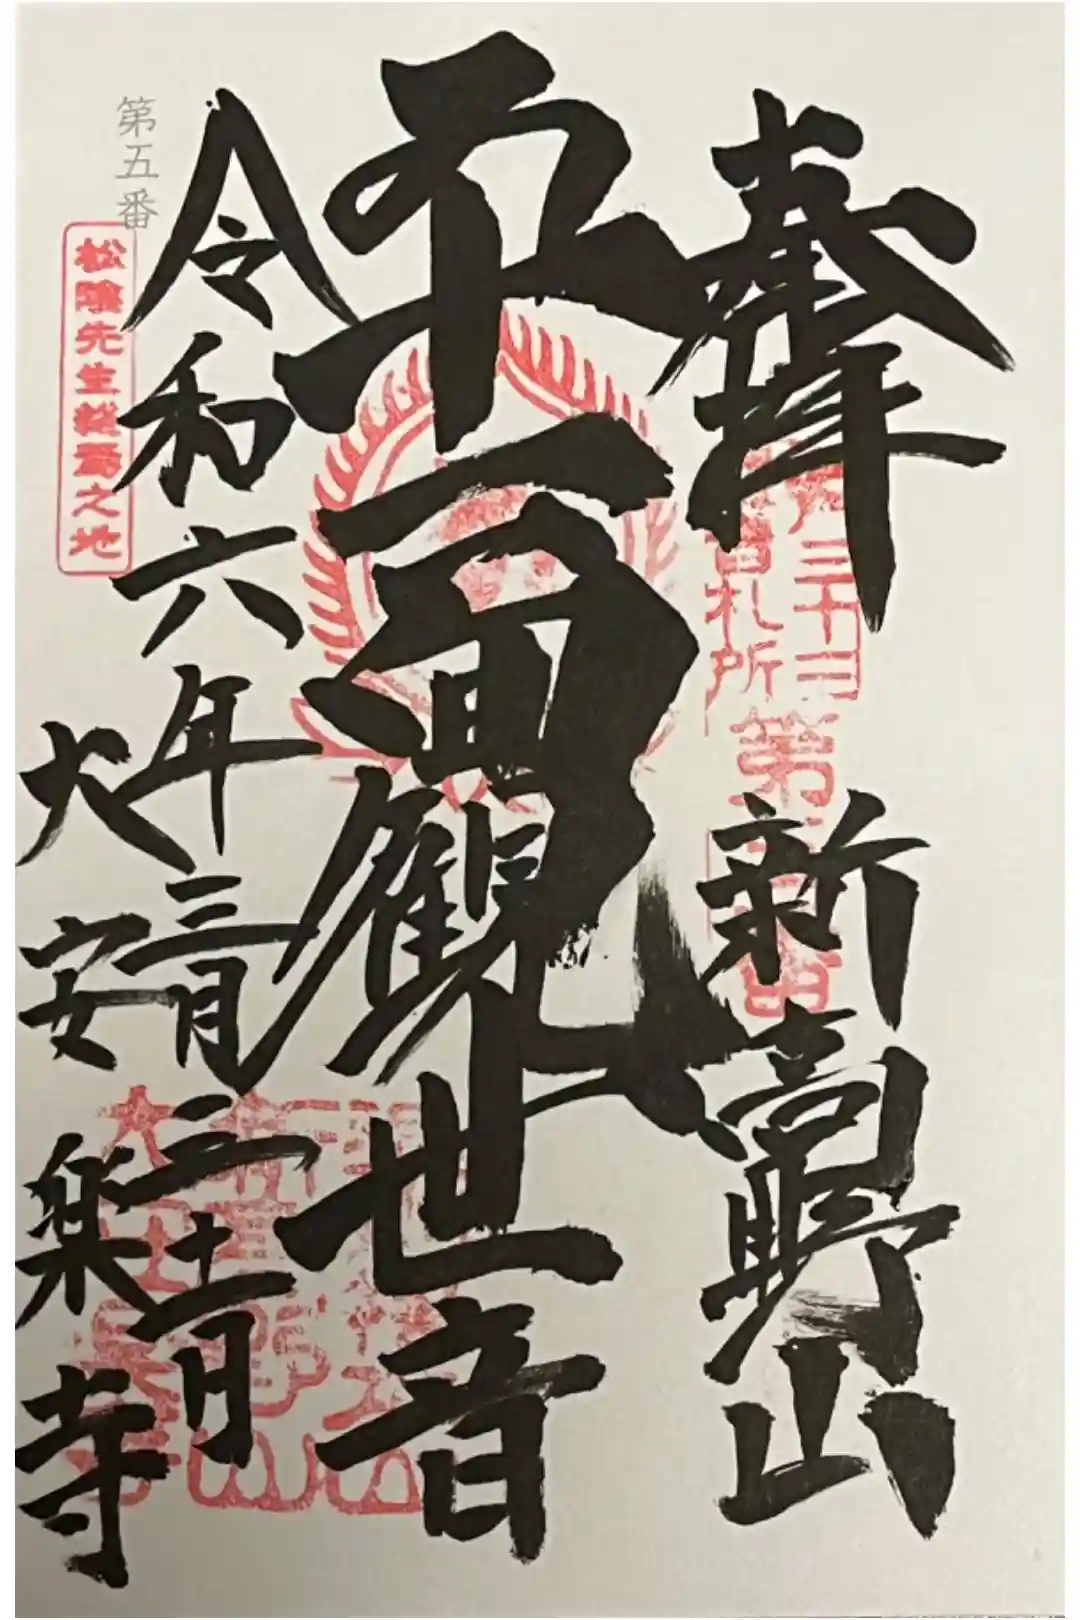 奉拝
江戸三十三
観音札所
第五番
新高野山
十一面観世音
令和六年三月三十一日
第五番
松陰先生終焉之地
大安楽寺